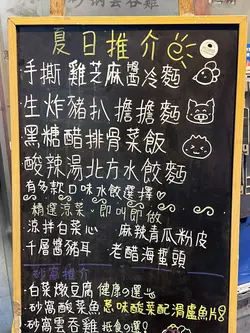 夏日推介
手撕雞芝麻醬冷麵
生炸豬扒擔擔麵
黑糖醋排骨菜飯
酸辣湯北方水餃麵
有多款口味水餃選擇♡
精選涼菜、即叫即做
涼拌白菜心 麻辣青瓜粉皮
千層醬豬耳 老醋海蜇頭
砂窩推介
·白菜燉豆腐 健康の選
·砂窩酸菜魚 惹味酸菜配滑鱸魚片
·砂窩雲吞雞 抵食の選